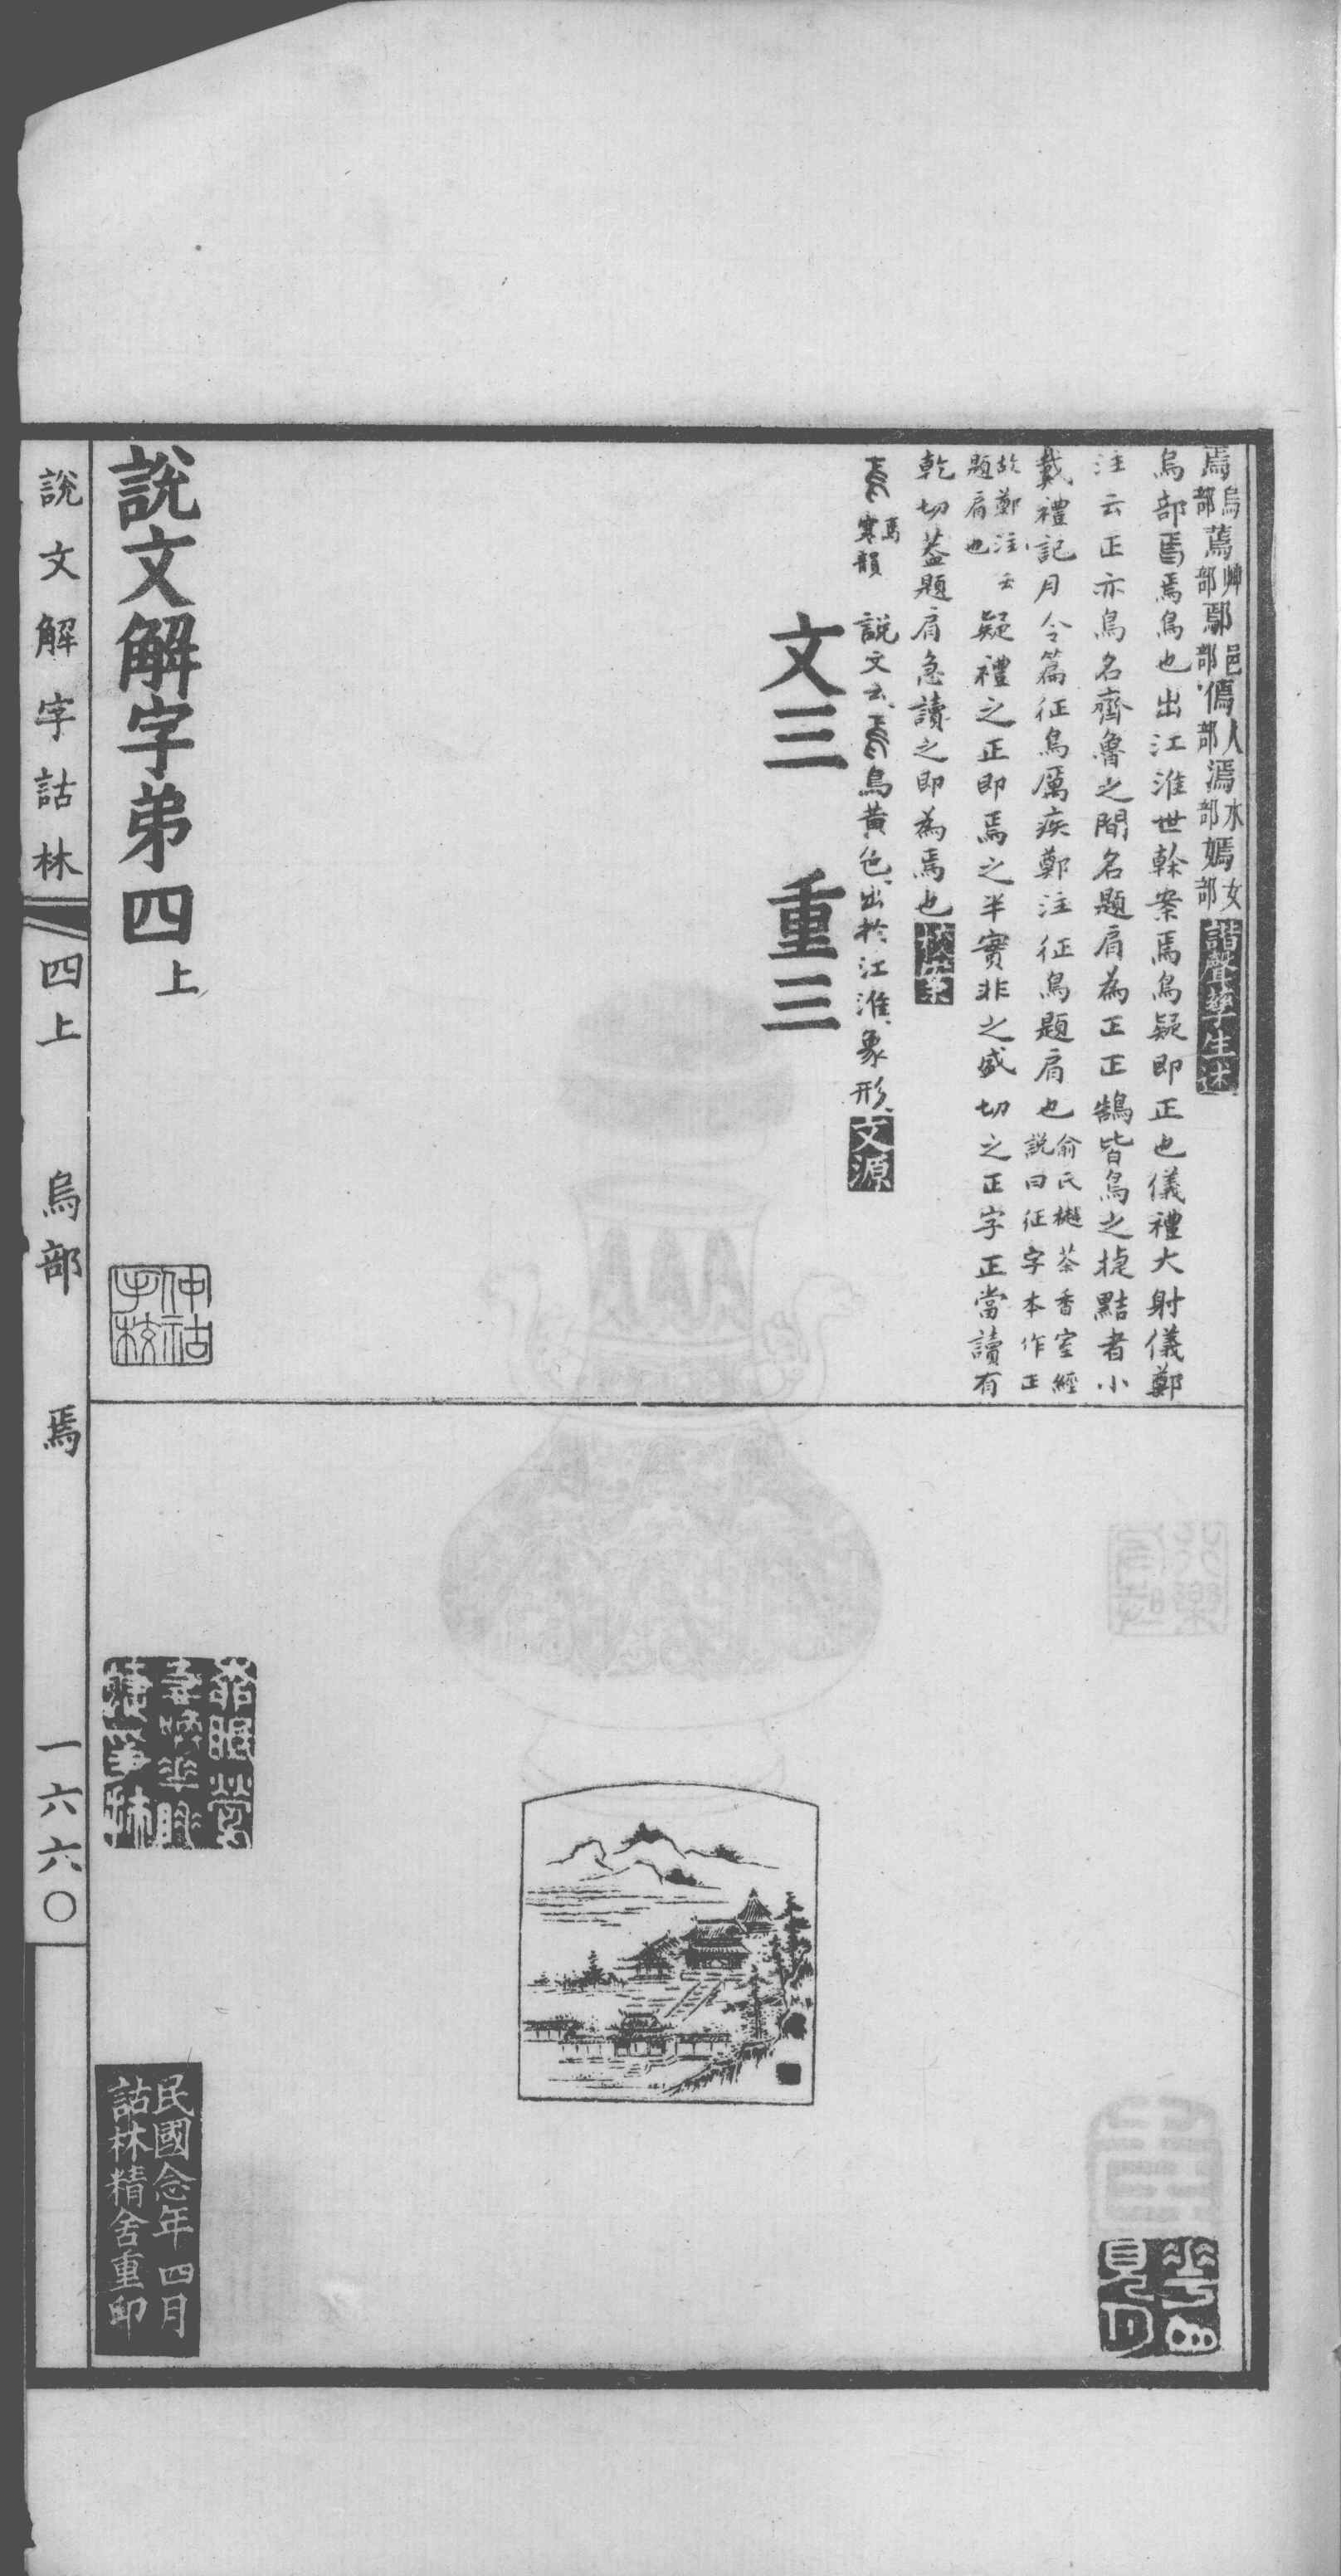 焉烏部蔫艸部鄢邑部傿人部漹水部嫣女部諧聲孳生述
烏部焉焉鳥也出江淮世榦案焉鳥疑即正也儀禮大射儀鄭
注云正亦鳥名齊魯之間名題肩為正正鵠皆鳥之捷黠者小
戴禮記月令篇征鳥厲疾鄭注征鳥題肩也俞氏樾茶香室經說曰征字本作正
故鄭注云題肩也疑禮之正即焉之半實非之盛切之正字正當讀有
乾切蓋題肩急讀之即為焉也校案
焉寒韻說文云焉鳥黃色出於江淮象形文源
文三 重三
說文解字弟四上
仲祜手校
說文解字詁林 四上 烏部 焉 一六六〇
民國念年四月
詁林精舍重印